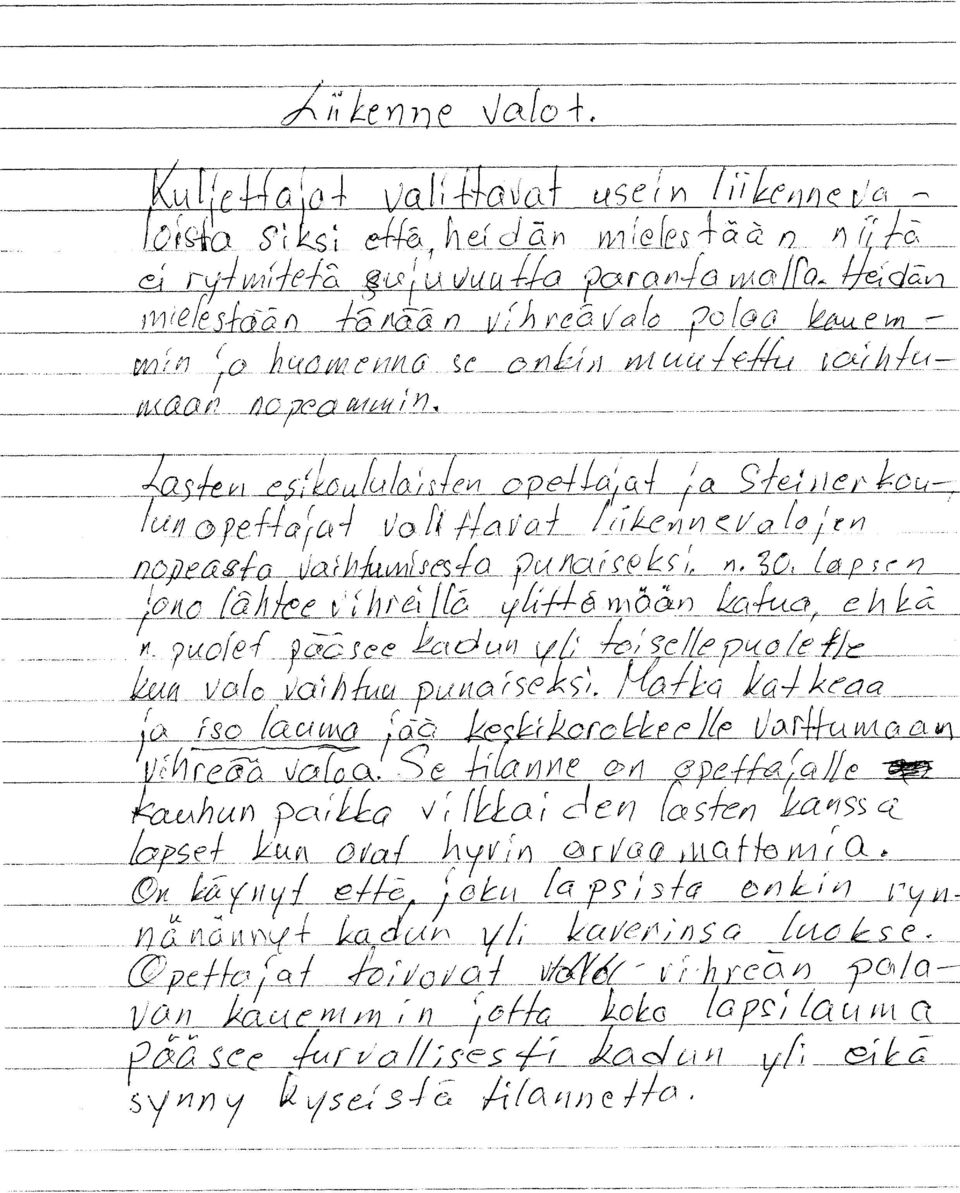 Liikenne valot.
Kuljettajat valittavat usein liikenneva-
loista siksi että, heidän mielestään niitä
ei rytmitetä sujuvuutta parantamalla. Heidän
mielestään tänään vihreävalo palaa kauem-
min ja huomenna se onkin muutettu vaihtu-
maan nopeammin.
Lasten esikoululaisten opettajat ja Steinerkou-
lunopettajat valittavat liikennevalojen
nopeasta vaihtumisesta punaiseksi. n. 30. lapsen
jono lähtee vihreillä ylittämään katua, ehkä
n. puolet pääsee kadun yli toisellepuolelle
kun valo vaihtuu punaiseksi. Matka katkeaa
ja iso lauma jää keskikorokkeelle varttumaan
vihreää valoa. Se tilanne on opettajalle
kauhun paikka vilkkaiden lasten kanssa
lapset kun ovat hyvin arvaamattomia.
On käynyt että, joku lapsista onkin ryn-
nänännyt kadun yli kaverinsa luokse.
Opettajat toivovat vihreän pala-
van kauemmin jotta koko lapsilauma
pääsee turvallisesti kadun yli eikä
synny kyseistä tilannetta.